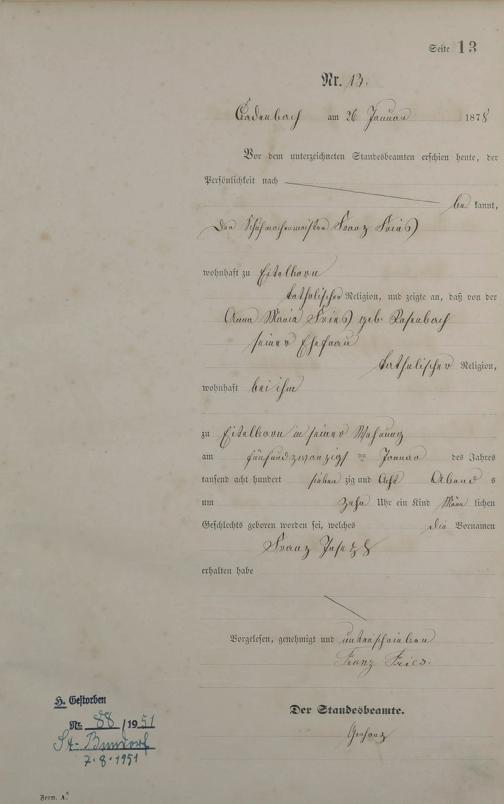 Seite 13
Nr. 13.
Cadenbach am 26 Januar 1878
Vor dem unterzeichneten Standesbeamten erschien heute, der
Persönlichkeit nach
be kannt,
der Schuhmachermeister Franz Fries
wohnhaft zu Eitelborn
katholischer Religion, und zeigte an, daß von der
Anna Maria Fries geb.
seiner Ehefrau
katholischer Religion,
wohnhaft bei ihm
zu Eitelborn in seiner Wohnung
am fünfundzwanzigsten Januar des Jahres
tausend acht hundert sieben zig und Acht Abend s
um zehn Uhr ein Kind Männ lichen
Geschlechts geboren worden sei, welches die Vornamen
Franz Joseph
erhalten habe
Vorgelesen, genehmigt und unterschrieben
Franz Fries.
Der Standesbeamte.
H. Gestorben
Nr. 88 / 1951
St-
7.8.1951
Form. A.